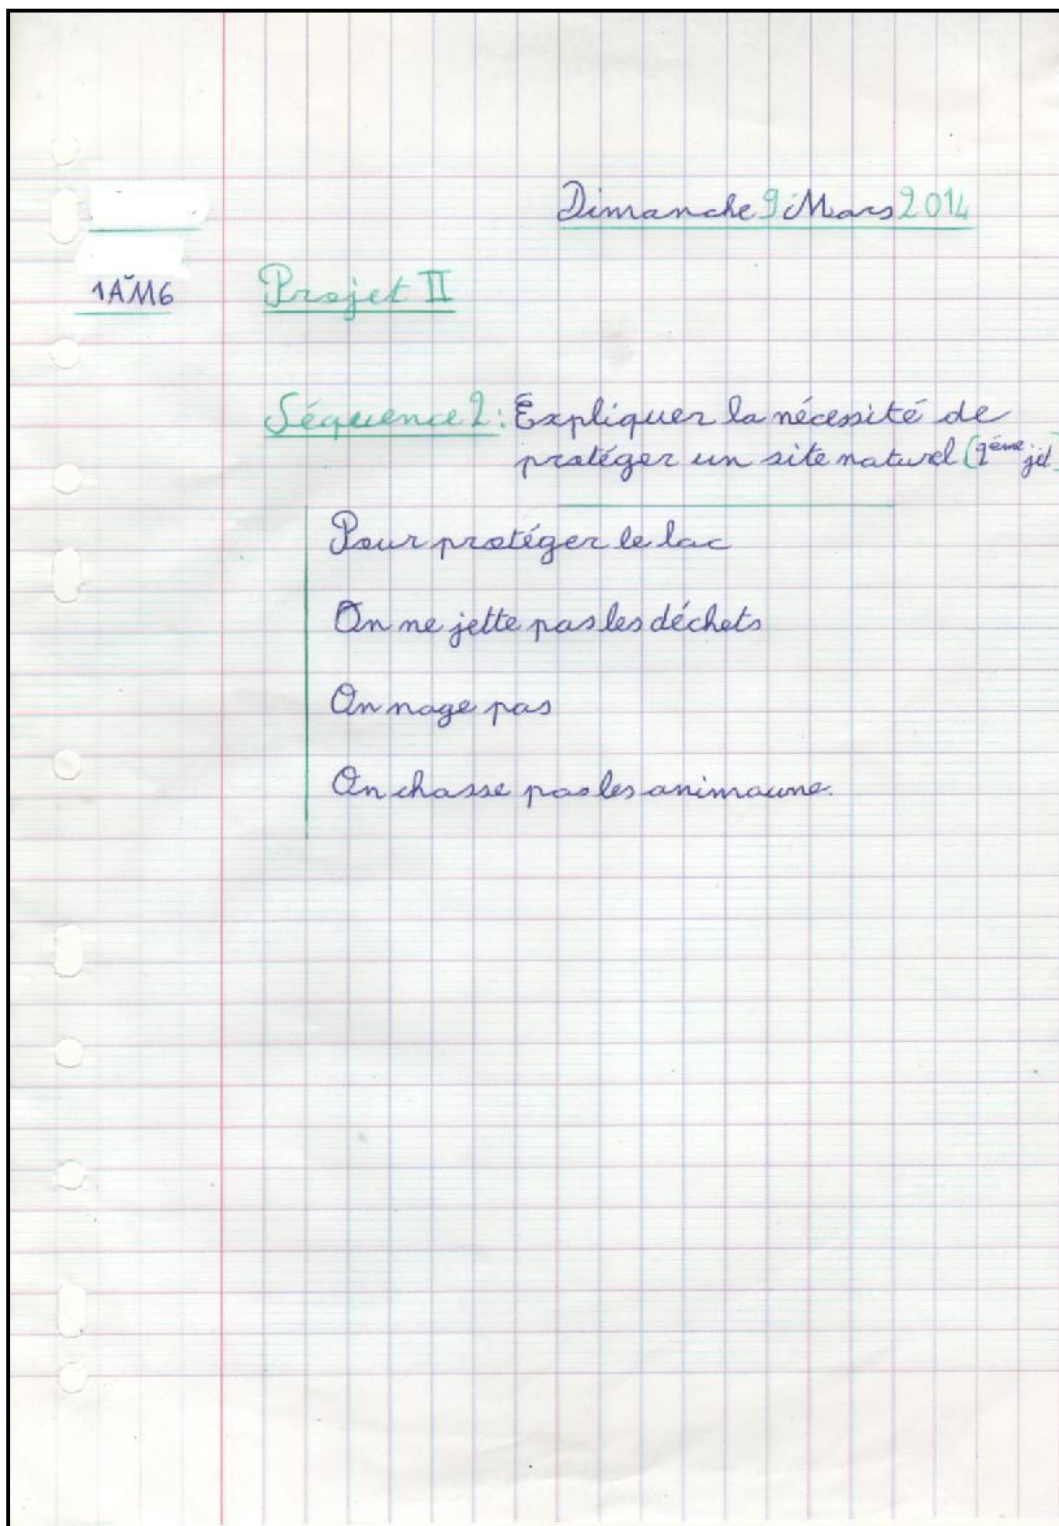 Dimanche 9 Mars 2014
1AM6
Projet II
Séquence 2: Expliquer la nécessité de
protéger un site naturel (2ème jet)
Pour protéger le lac
On ne jette pas les déchets
On nage pas
On chasse pas les animaune.